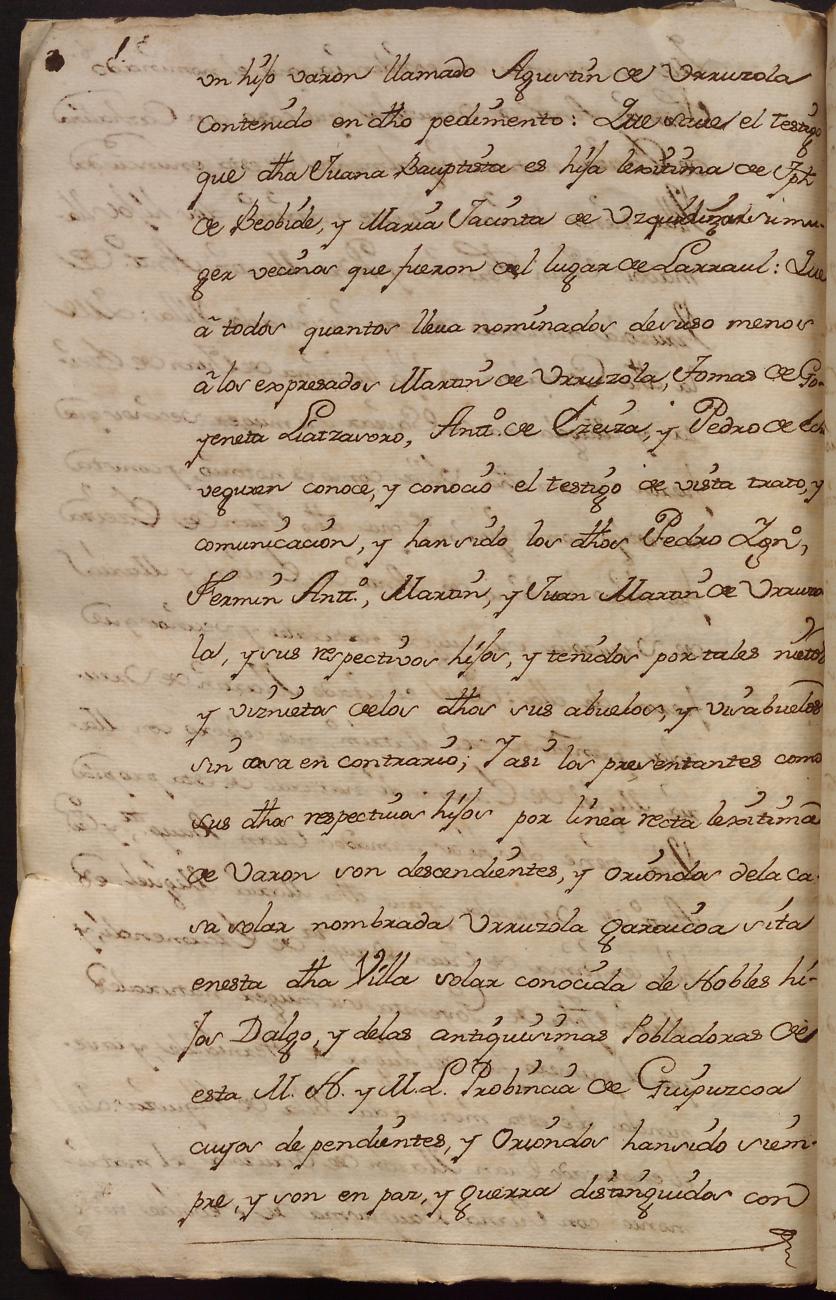 un hijo varon llamado Agustin de Urruzola
contenido en dho pedimento: Que save el testigo
que dha Juana Bauptista es hija lexitima de Jph
de Beobide, y Maria Jacinta de Uzquidizar su mu-
ger vecinos que fueron del lugar de Larraul: Que
â todos quantos lleva nominados desuso menos
â los expresados Martin de Urruzola, Tomas de Go-
yeneta Liatzasoro, Antt.º de Izeiza, y Pedro de Ech
veguren conoce, y conocio el testigo de vista trato, y
comunicacion, y han sido los dhos Pedro Ign.º,
Fermin Antt.º, Martin, y Juan Martin de Urruzo
la, y sus respectivos hijos, y tenidos por tales nietos
y viznietos delos dhos sus abuelos, y visabuelos
sin cosa en contrario; Y asi los presentantes como
sus dhos respectivos hijos por linea recta lexitima
de Varon son descendientes, y oriundos dela ca-
sa solar nombrada Urruzola garaicoa sita
enesta dha Villa solar conocida de Nobles hi-
jos Dalgo, y delas antiquisimas Pobladoras de
esta M. N. y M. L. Probincia de Guipuzcoa
cuyos dependientes, y Oriundos hansido siem-
pre, y son en paz, y guerra distinguidos con